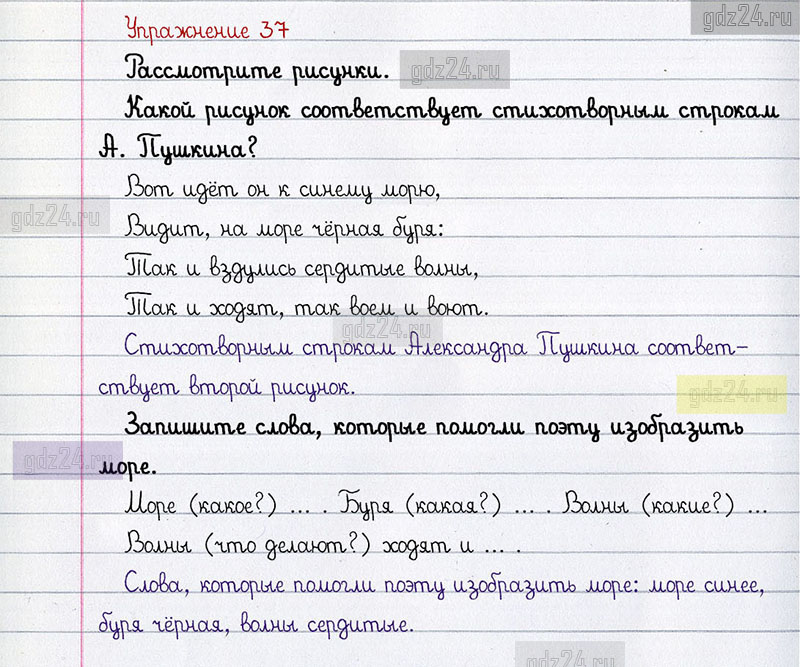 gdz24.ru
Упражнение 37
Рассмотрите рисунки.
gdz24.ru
Какой рисунок соответствует стихотворным строкам
А. Пушкина?
Вот идёт он к синему морю,
gdz24.ru
Видит, на море чёрная буря:
Так и вздулись сердитые волны,
Так и ходят, так воем и воют.
gdz24.ru
Стихотворным строкам Александра Пушкина соответ-
ствует второй рисунок.
gdz24.ru
Запишите слова, которые помогли поэту изобразить
gdz24.ru
море.
Море (какое?) ... . Буря (какая?) ... . Волны (какие?) ...
Волны (что делают?) ходят и ... .
Слова, которые помогли поэту изобразить море: море синее,
буря чёрная, волны сердитые.
gdz24.ru